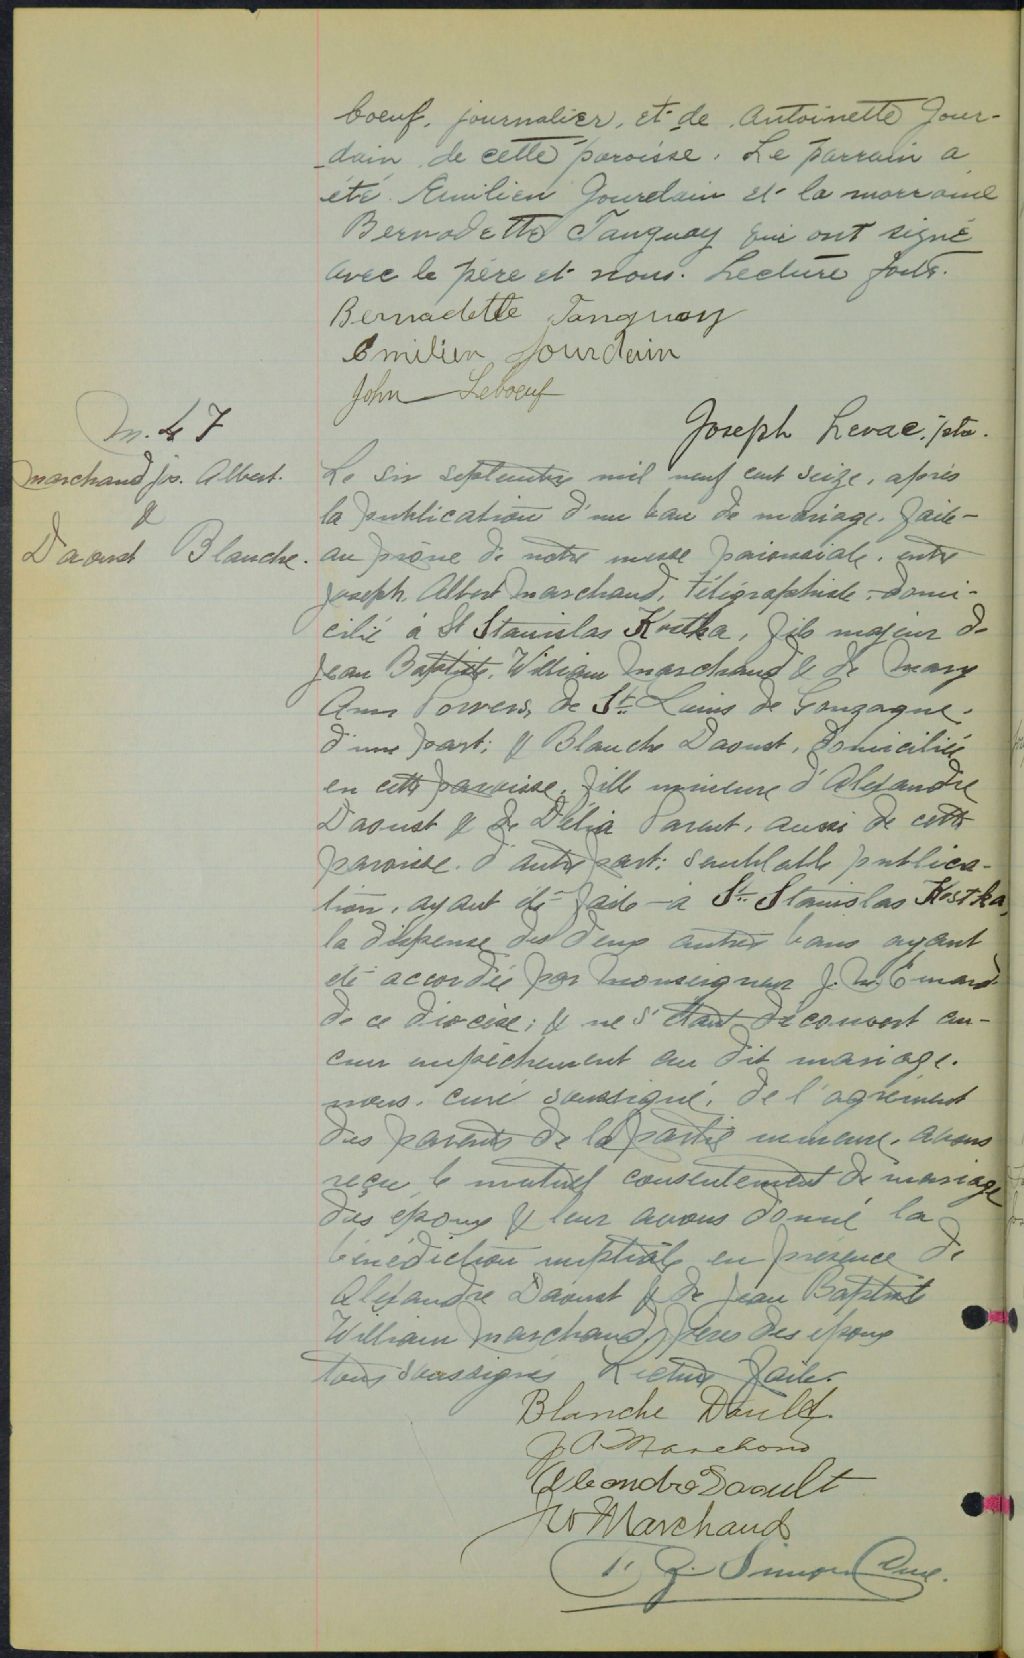 boeuf, journalier, et de Antoinette Jour-
dain de cette paroisse. Le parrain a
été Emilien Jourdain et la marraine
Bernadette Tanguay qui ont signé
avec le père et nous. Lecture faite.
Bernadette Tanguay
Emilien Jourdain
John Leboeuf
Joseph Levac, ptre.
M. 47
Marchand Jos. Albert.
&
Daoust Blanche.
Le six septembre mil neuf cent seize, après
la publication d'un ban de mariage, faite
au prône de notre messe paroissiale, entre
Joseph Albert Marchand, télégraphiste, domi-
cilié à St Stanislas Kostka, fils majeur de
Jean Baptiste William Marchand & de Mary
Ann Powers, de St. Louis de Gonzague,
d'une part; & Blanche Daoust, domiciliée
en cette paroisse, fille mineure d'Alexandre
Daoust & de Délia Parent, aussi de cette
paroisse, d'autre part: semblable publica-
tion, ayant été faite à St. Stanislas Kostka,
la dispense des deux autres bans ayant
été accordée par Monseigneur J. M. Émard
de ce diocèse; & ne s'étant découvert au-
cun empêchement au dit mariage.
nous, curé soussigné, de l'agrément
des parents de la partie mineure, avons
reçu le mutuel consentement de mariage
des époux & leur avons donné la
bénédiction nuptiale en présence de
Alexandre Daoust & de Jean Baptiste
William Marchand, pères des époux
tous soussignés Lecture faite.
Blanche Daoult.
J A Marchand
Alexandre Daoult
Marchand
Simon Curé.